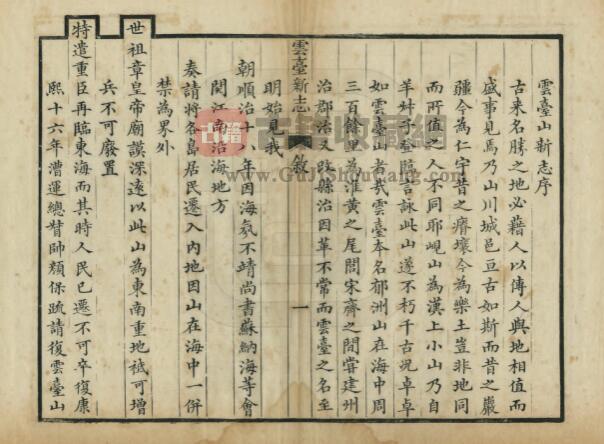 雲臺山新志序
古来名勝之地必藉人以傳人與地相值而
盛事見焉乃山川城邑亘古如斯而昔之嚴
疆今為仁宇昔之瘠壤今為樂土豈非地同
而所值之人不同耶峴山為漢上小山乃自
羊叔子登臨言詠此山遂不朽千古况卓卓
如雲臺山者哉雲臺本名郁洲山在海中周
三百餘里為淮黃之尾閭宋齊之間嘗建州
治郡治又改縣治因革不常而雲臺之名至
雲臺新志 敘 一
明始見我
朝順治十八年因海氛不靖尚書蘇納海等會
閱江南沿海地方
奏請將各島居民遷入內地因山在海中一併
禁為界外
世祖章皇帝廟謨深遠以此山為東南重地祗可增
兵不可廢置
特遣重臣再臨東海而其時人民已遷不可卒復康
熙十六年漕運總督帥顏保疏請復雲臺山
古籍
www.GuJiShouCang.com